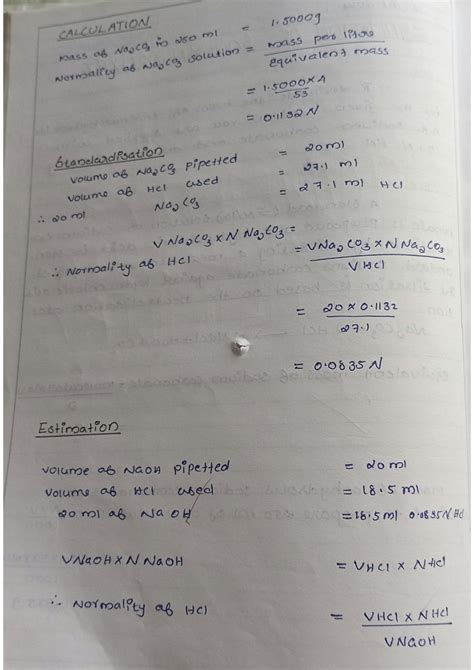 CALCULATION
Mass of Na₂CO₃ in 250 ml = 1.5000g
Normality of Na₂CO₃ solution = mass per litre / equivalent mass
= 1.5000 × 4 / 53
= 0.1132 N
Standardisation
Volume of Na₂CO₃ pipetted = 20ml
Volume of HCl used = 27.1 ml
∴ 20ml Na₂CO₃ = 27.1 ml HCl
V Na₂CO₃ × N Na₂CO₃ =
∴ Normality of HCl = VNa₂CO₃ × N Na₂CO₃ / V HCl
= 20 × 0.1132 / 27.1
= 0.0835 N
Estimation
Volume of NaOH pipetted = 20 ml
Volume of HCl used = 18.5 ml
20 ml of NaOH = 18.5 ml 0.0835 N HCl
VNaOH × N NaOH = VHCl × NHCl
∴ Normality of HCl = VHCl × NHCl / VNaOH